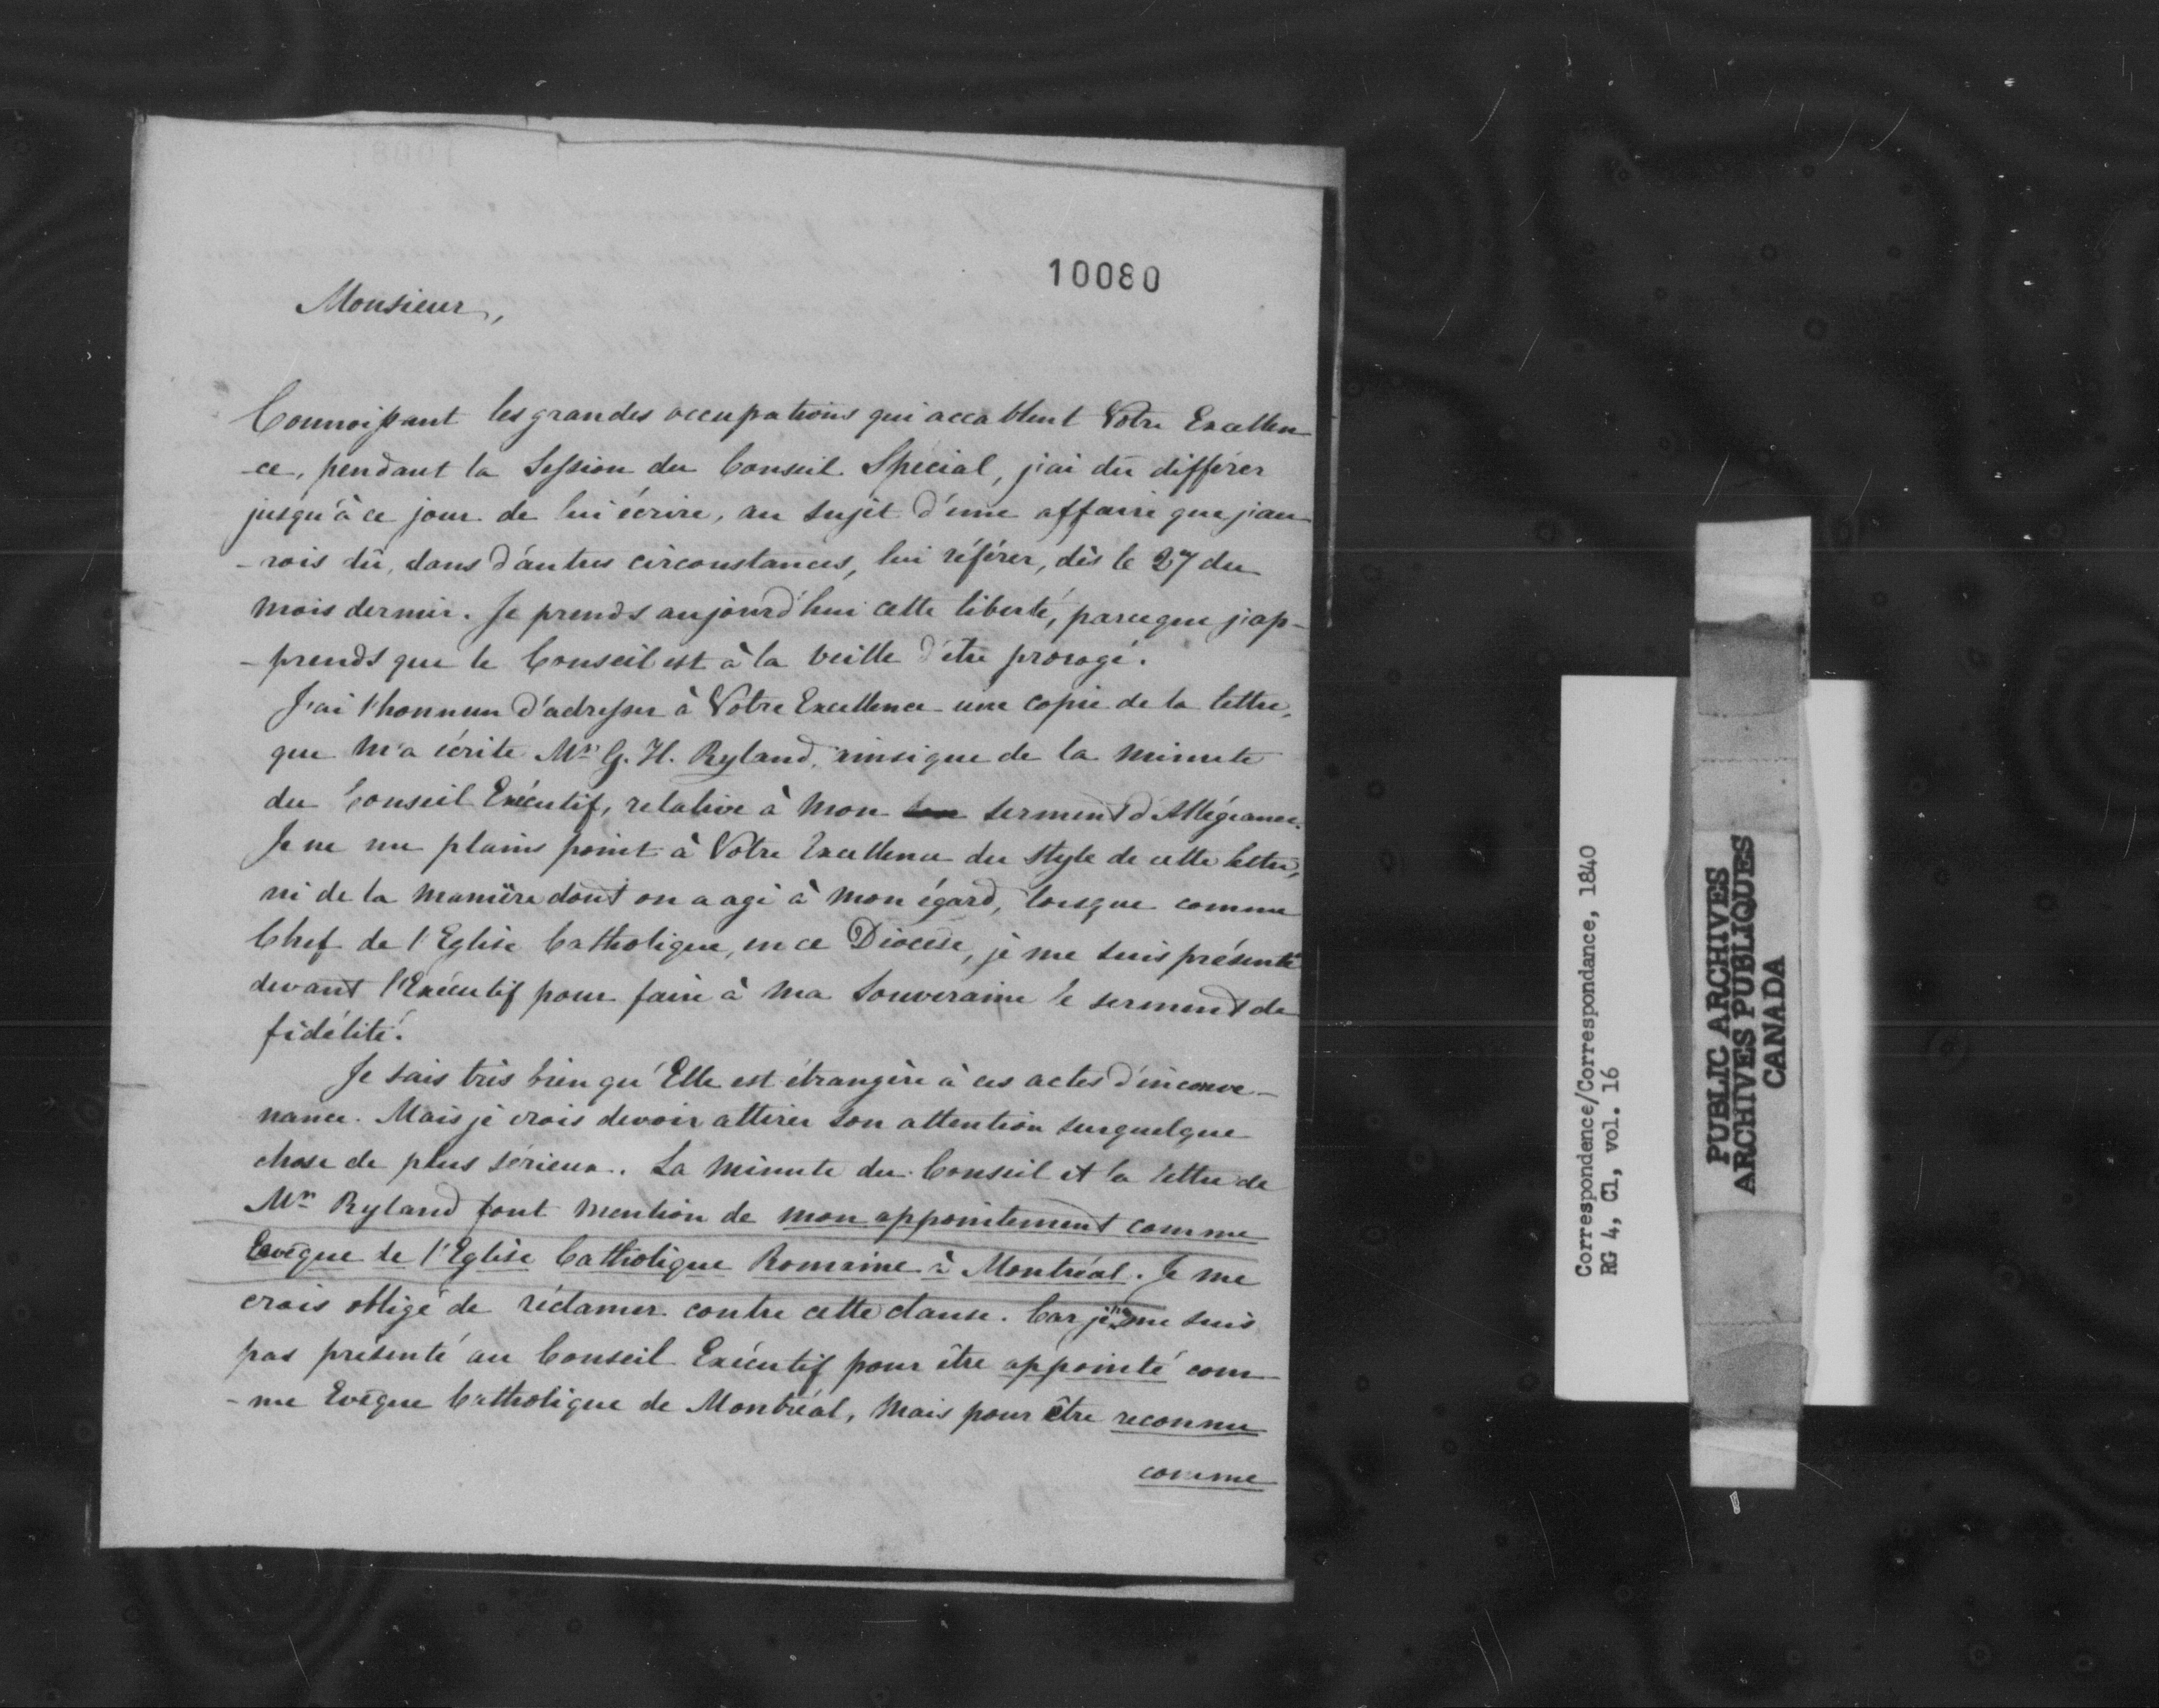 10080
Monsieur,
Connoissant les grandes occupations qui accablent Votre Excellen
-ce, pendant la Session du Conseil Spécial, j'ai dû différer
jusqu'à ce jour de lui écrire, au sujet d'une affaire que j'au
-rois dû, dans d'autres circonstances, lui référer, dès le 27 du
mois dernier. Je prends aujourd'hui cette liberté, parceque j'ap-
-prends que le Conseil est à la veille d'être prorogé.
J'ai l'honneur d'adresser à Votre Excellence une copie de la lettre,
que m'a écrite Mr. G. H. Ryland, ainsi que de la minute
du Conseil Exécutif, relative à mon serment d'Allégeance.
Je ne me plains point à Votre Excellence du style de cette lettre,
ni de la manière dont on a agi à mon égard, lorsque comme
Chef de l'Eglise Catholique, en ce Diocèse, je me suis présenté
devant l'Exécutif pour faire à ma Souveraine le serment de
fidélité.
Je sais très bien qu'Elle est étrangère à ces actes d'inconve-
nance. Mais je crois devoir attirer son attention sur quelque
chose de plus sérieux. La minute du Conseil et la lettre de
Mr Ryland font mention de mon appointement comme
Evêque de l'Eglise Catholique Romaine à Montréal. Je me
crois obligé de réclamer contre cette clause. Car je ne me suis
pas présenté au Conseil Exécutif pour être appointé com
-me Evêque Catholique de Montréal, mais pour être reconnu
comme
Correspondence/Correspondance, 1840
RG 4, C1, vol. 16
PUBLIC ARCHIVES
ARCHIVES PUBLIQUES
CANADA